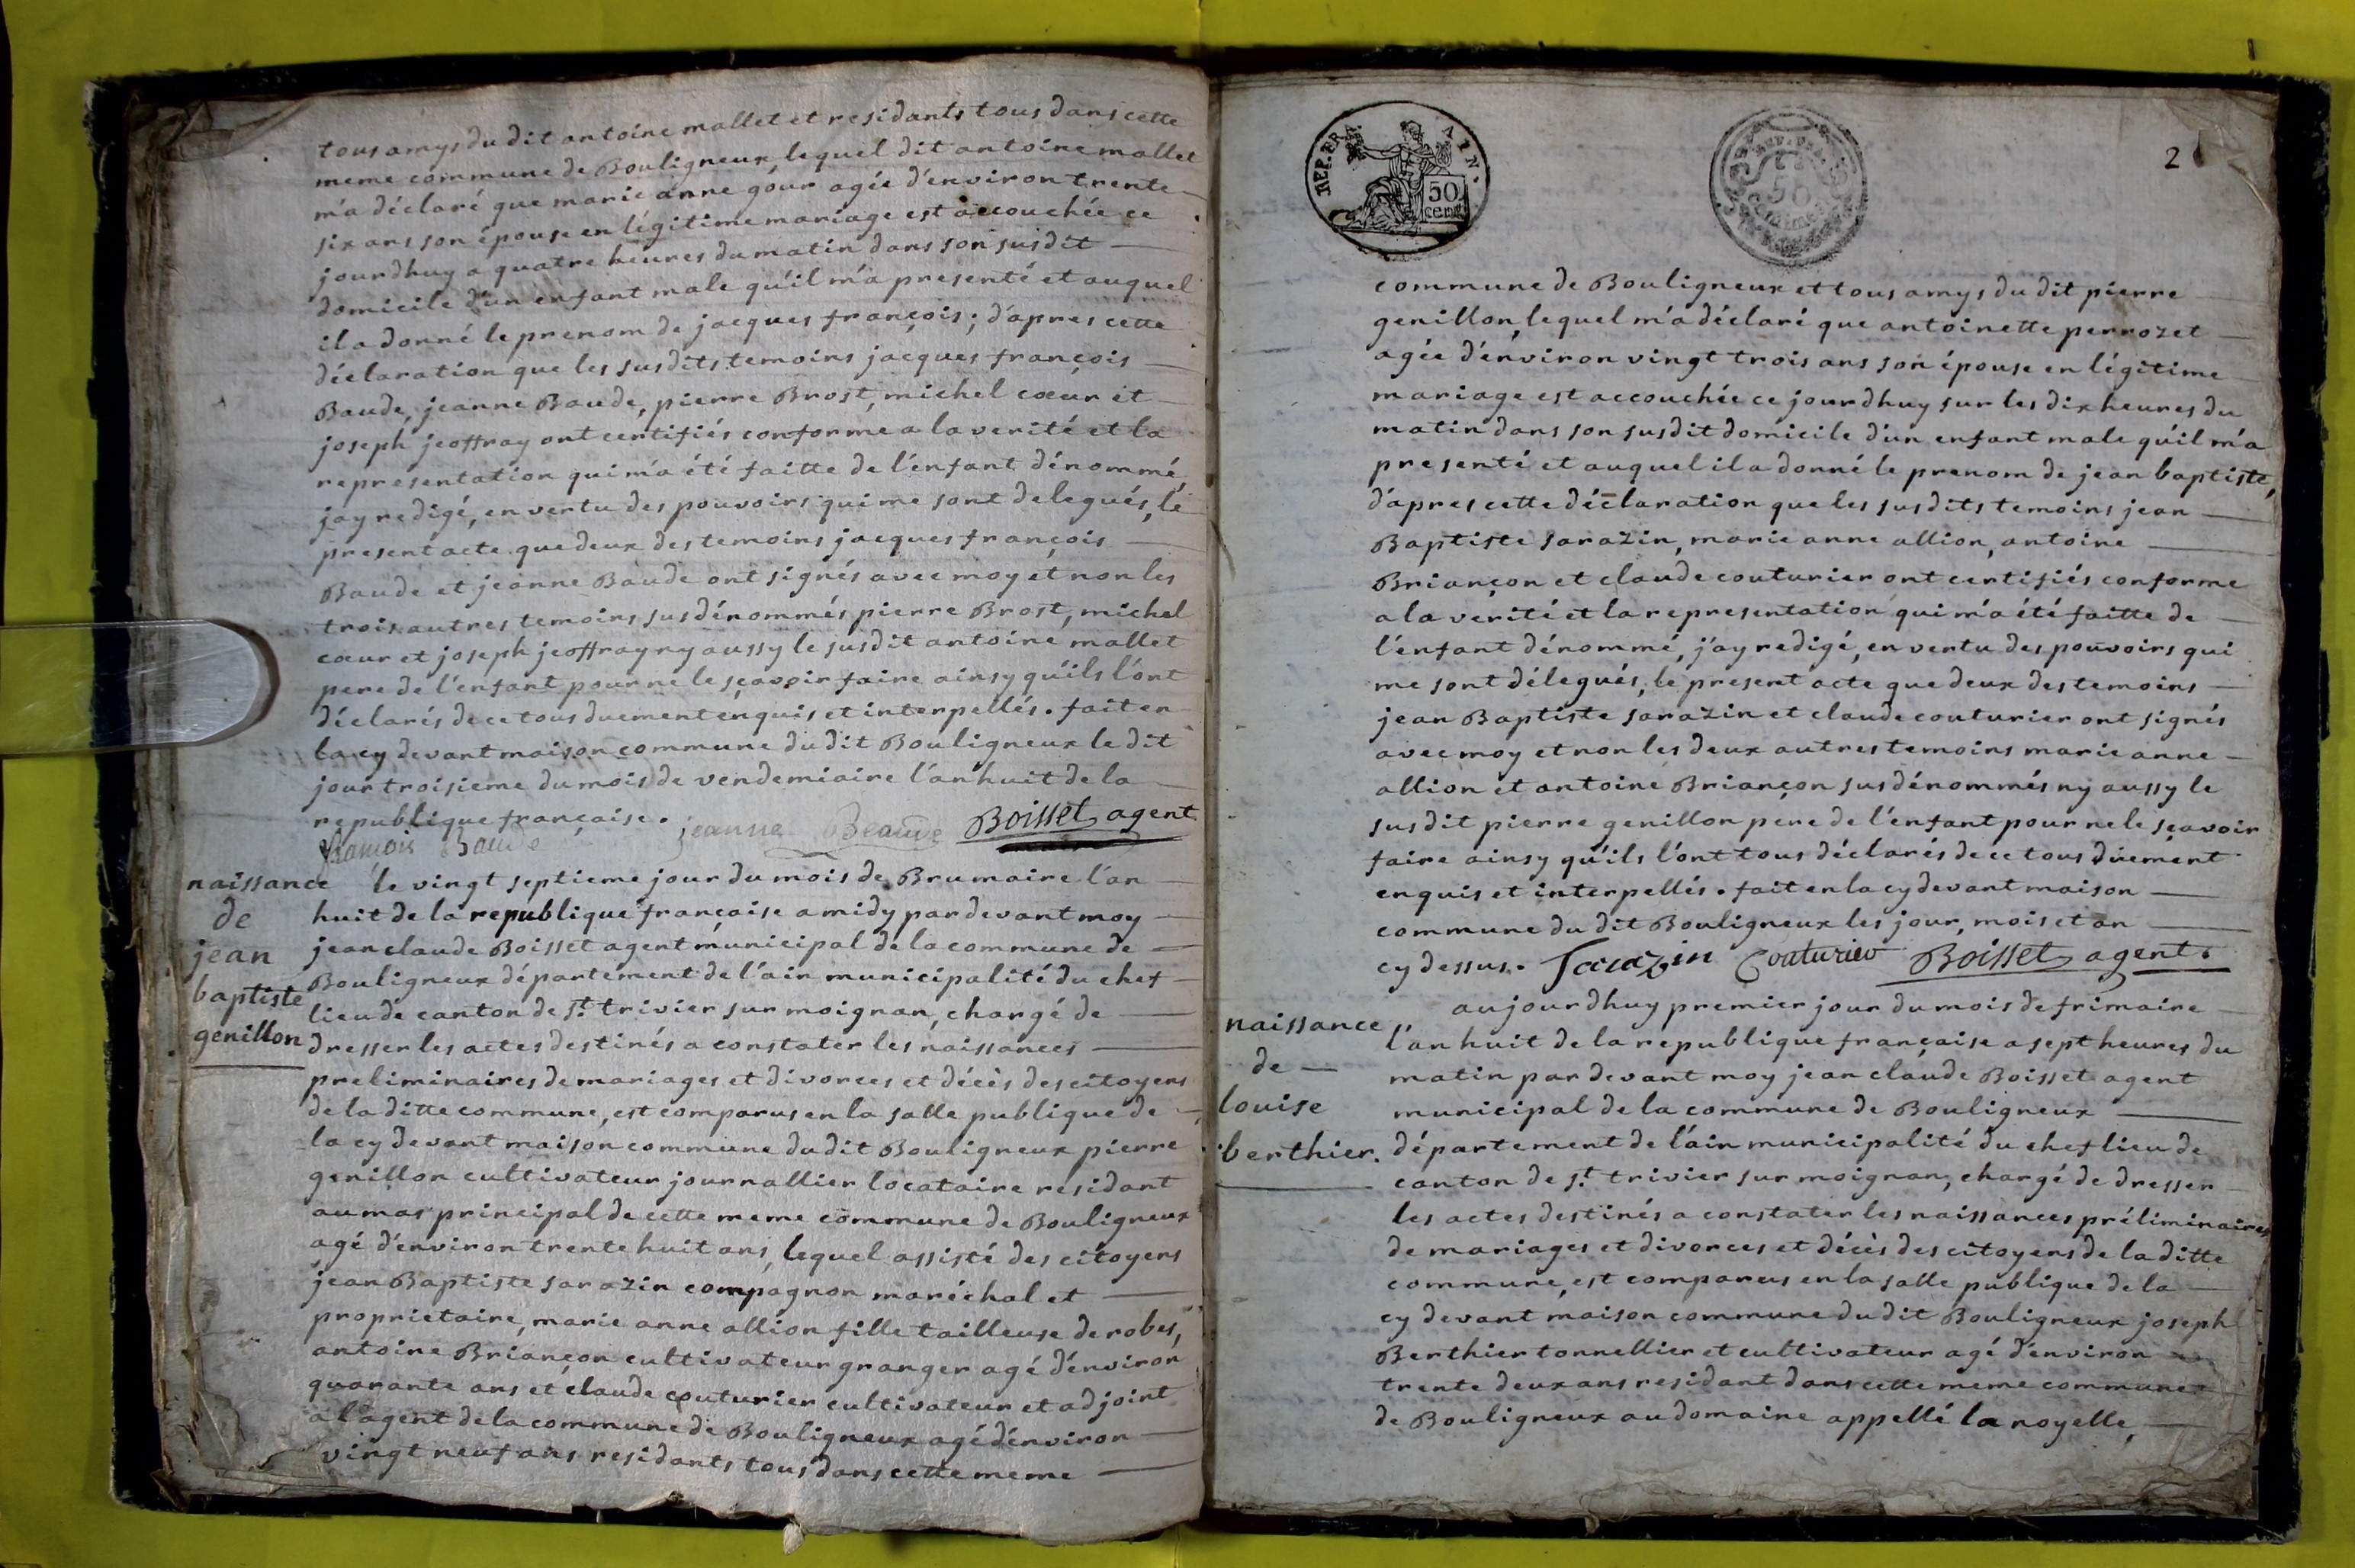 tous amys du dit antoine mallet et residants tous dans cette
meme commune de Bouligneux, lequel dit antoine mallet
m'a déclaré que marie anne gour agée d'environ trente
six ans son épouse en légitime mariage est accouchée ce
jourdhuy a quatre heures du matin dans son susdit
domicile d'un enfant male qu'il m'a presenté et auquel
il a donné le prenom de jacques françois; d'apres cette
déclaration que les susdits temoins jacques françois
Baude, jeanne Baude, pierre Brost, michel cœur et
joseph jeoffray ont certifiés conforme a la verité et la
representation qui m'a été faitte de l'enfant dénommé,
jay redigé, en vertu des pouvoirs qui me sont delegués, le
present acte que deux des temoins jacques françois
Baude et jeanne Baude ont signés avec moy et non les
trois autres temoins susdénommés pierre Brost, michel
cœur et joseph jeoffray ny aussy le susdit antoine mallet
pere de l'enfant pour ne le sçavoir faire ainsy qu'ils l'ont
déclarés de ce tous duement enquis et interpellés. fait en
la cy devant maison commune du dit Bouligneux le dit
jour troisieme du mois de vendemiaire l'an huit de la
republique française.
françois Baude jeanne Beaude Boisset agent
naissance
de
jean
baptiste
genillon
le vingt septieme jour du mois de Brumaire l'an
huit de la republique française a midy par devant moy
jean claude Boisset agent municipal de la commune de
Bouligneux département de l'ain municipalité du chef
lieu de canton de st. trivier sur moignan, chargé de
dresser les actes destinés a constater les naissances
preliminaires de mariages et divorces et décès des citoyens
de la ditte commune, est comparus en la salle publique de
la cy devant maison commune du dit Bouligneux pierre
genillon cultivateur journallier locataire residant
au mas principal de cette meme commune de Bouligneux
agé d'environ trente huit ans, lequel assisté des citoyens
jean Baptiste sarazin compagnon maréchal et
proprietaire, marie anne allion fille tailleuse de robes,
antoine Briançon cultivateur granger agé d'environ
quarante ans et claude couturier cultivateur et adjoint
a l'agent de la commune de Bouligneux agé d'environ
vingt neuf ans residants tous dans cette meme
REP. FRA
50
cent
REP. FRA.
50
centimes
2
commune de Bouligneux et tous amys du dit pierre
genillon, lequel m'a déclaré que antoinette perrozet
agée d'environ vingt trois ans son épouse en légitime
mariage est accouchée ce jourdhuy sur les dix heures du
matin dans son susdit domicile d'un enfant male qu'il m'a
presenté et auquel il a donné le prenom de jean baptiste,
d'apres cette déclaration que les susdits temoins jean
Baptiste sarazin, marie anne allion, antoine
Briançon et claude couturier ont certifiés conforme
a la verité et la representation qui m'a été faitte de
l'enfant dénommé, j'ay redigé, en vertu des pouvoirs qui
me sont délegués, le present acte que deux des temoins
jean Baptiste sarazin et claude couturier ont signés
avec moy et non les deux autres temoins marie anne
allion et antoine Briançon susdénommés ny aussy le
susdit pierre genillon pere de l'enfant pour ne le sçavoir
faire ainsy qu'ils l'ont tous déclarés de ce tous duement
enquis et interpellés. fait en la cy devant maison
commune du dit Bouligneux les jour, mois et an
cy dessus. Sarazin Couturier Boisset agent.
naissance
de
louise
berthier.
aujourdhuy premier jour du mois de frimaire
l'an huit de la republique française a sept heures du
matin par devant moy jean claude Boisset agent
municipal de la commune de Bouligneux
département de l'ain municipalité du chef lieu de
canton de st. trivier sur moignan, chargé de dresser
les actes destinés a constater les naissances préliminaires
de mariages et divorces et décès des citoyens de la ditte
commune, est comparus en la salle publique de la
cy devant maison commune du dit Bouligneux joseph
Berthier tonnellier et cultivateur agé d'environ
trente deux ans residant dans cette meme commune
de Bouligneux au domaine appellé la noyelle,